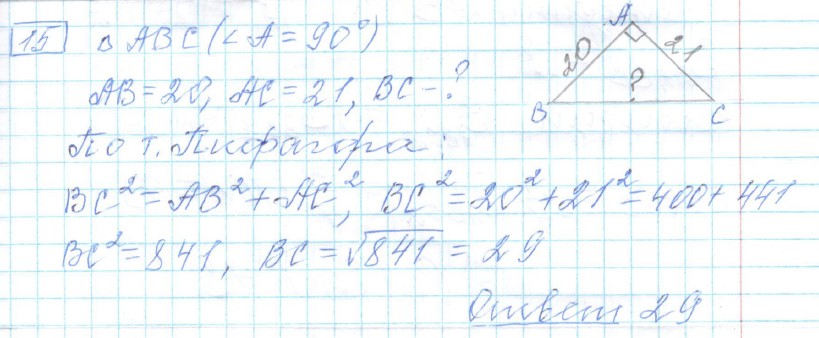 15 △ ABC (∠A = 90°)
AB = 20, AC = 21, BC - ?
По т. Пифагора:
BC² = AB² + AC², BC² = 20² + 21² = 400 + 441
BC² = 841, BC = √841 = 29
Ответ 29
A
20
21
?
B
C